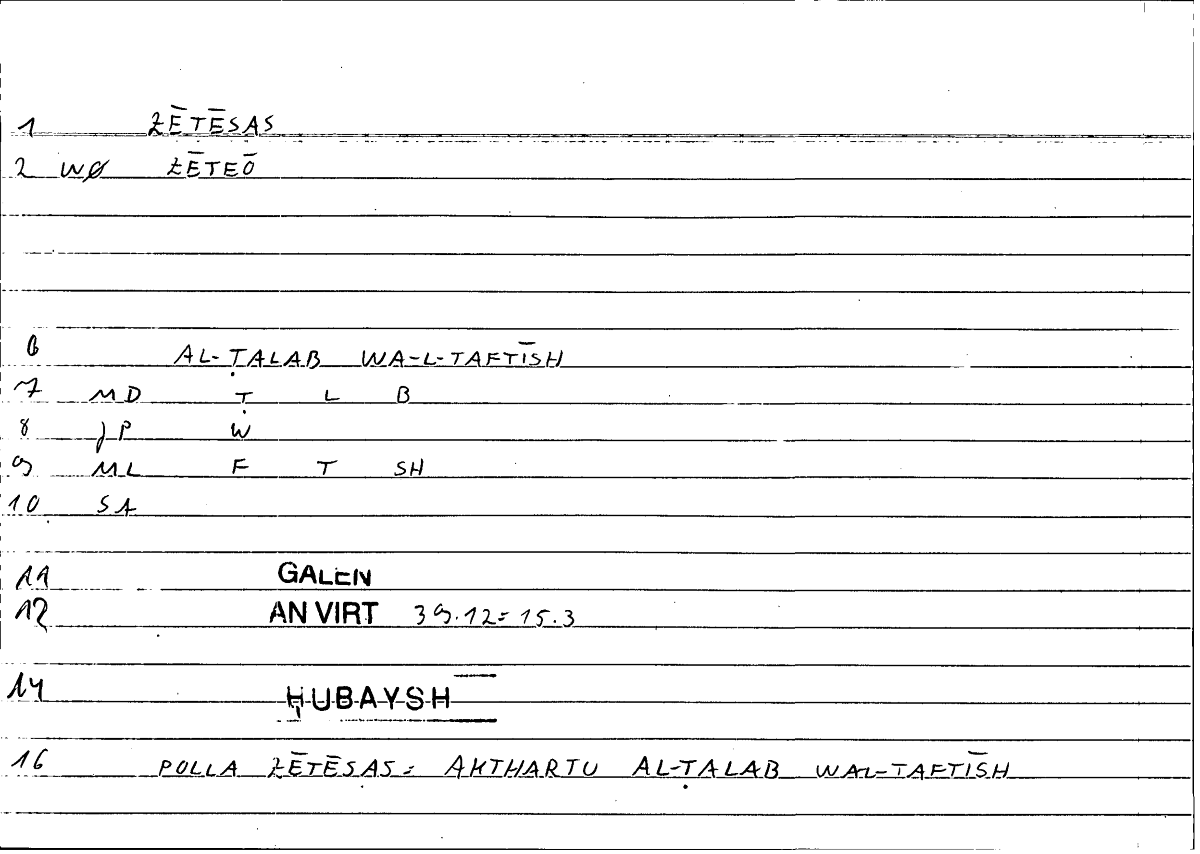 1 ZĒTĒSAS
2 WØ ZĒTEŌ
6 AL-ṬALAB WA-L-TAFTĪSH
7 MD Ṭ L B
8 JP W
9 ML F T SH
10 SA
11 GALEN
12 AN VIRT 39.12=15.3
14 ḤUBAYSH
16 POLLA ZĒTĒSAS= AKTHARTU AL-ṬALAB WAL-TAFTĪSH